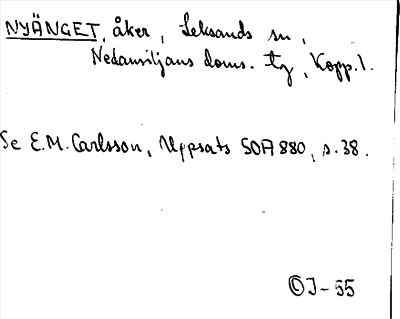 NYÄNGET, åker, Leksands sn,
Nedansiljans doms. tg, Kopp. l.
Se E.M. Carlsson, Uppsats SOA 880, s. 38.
OJ-55